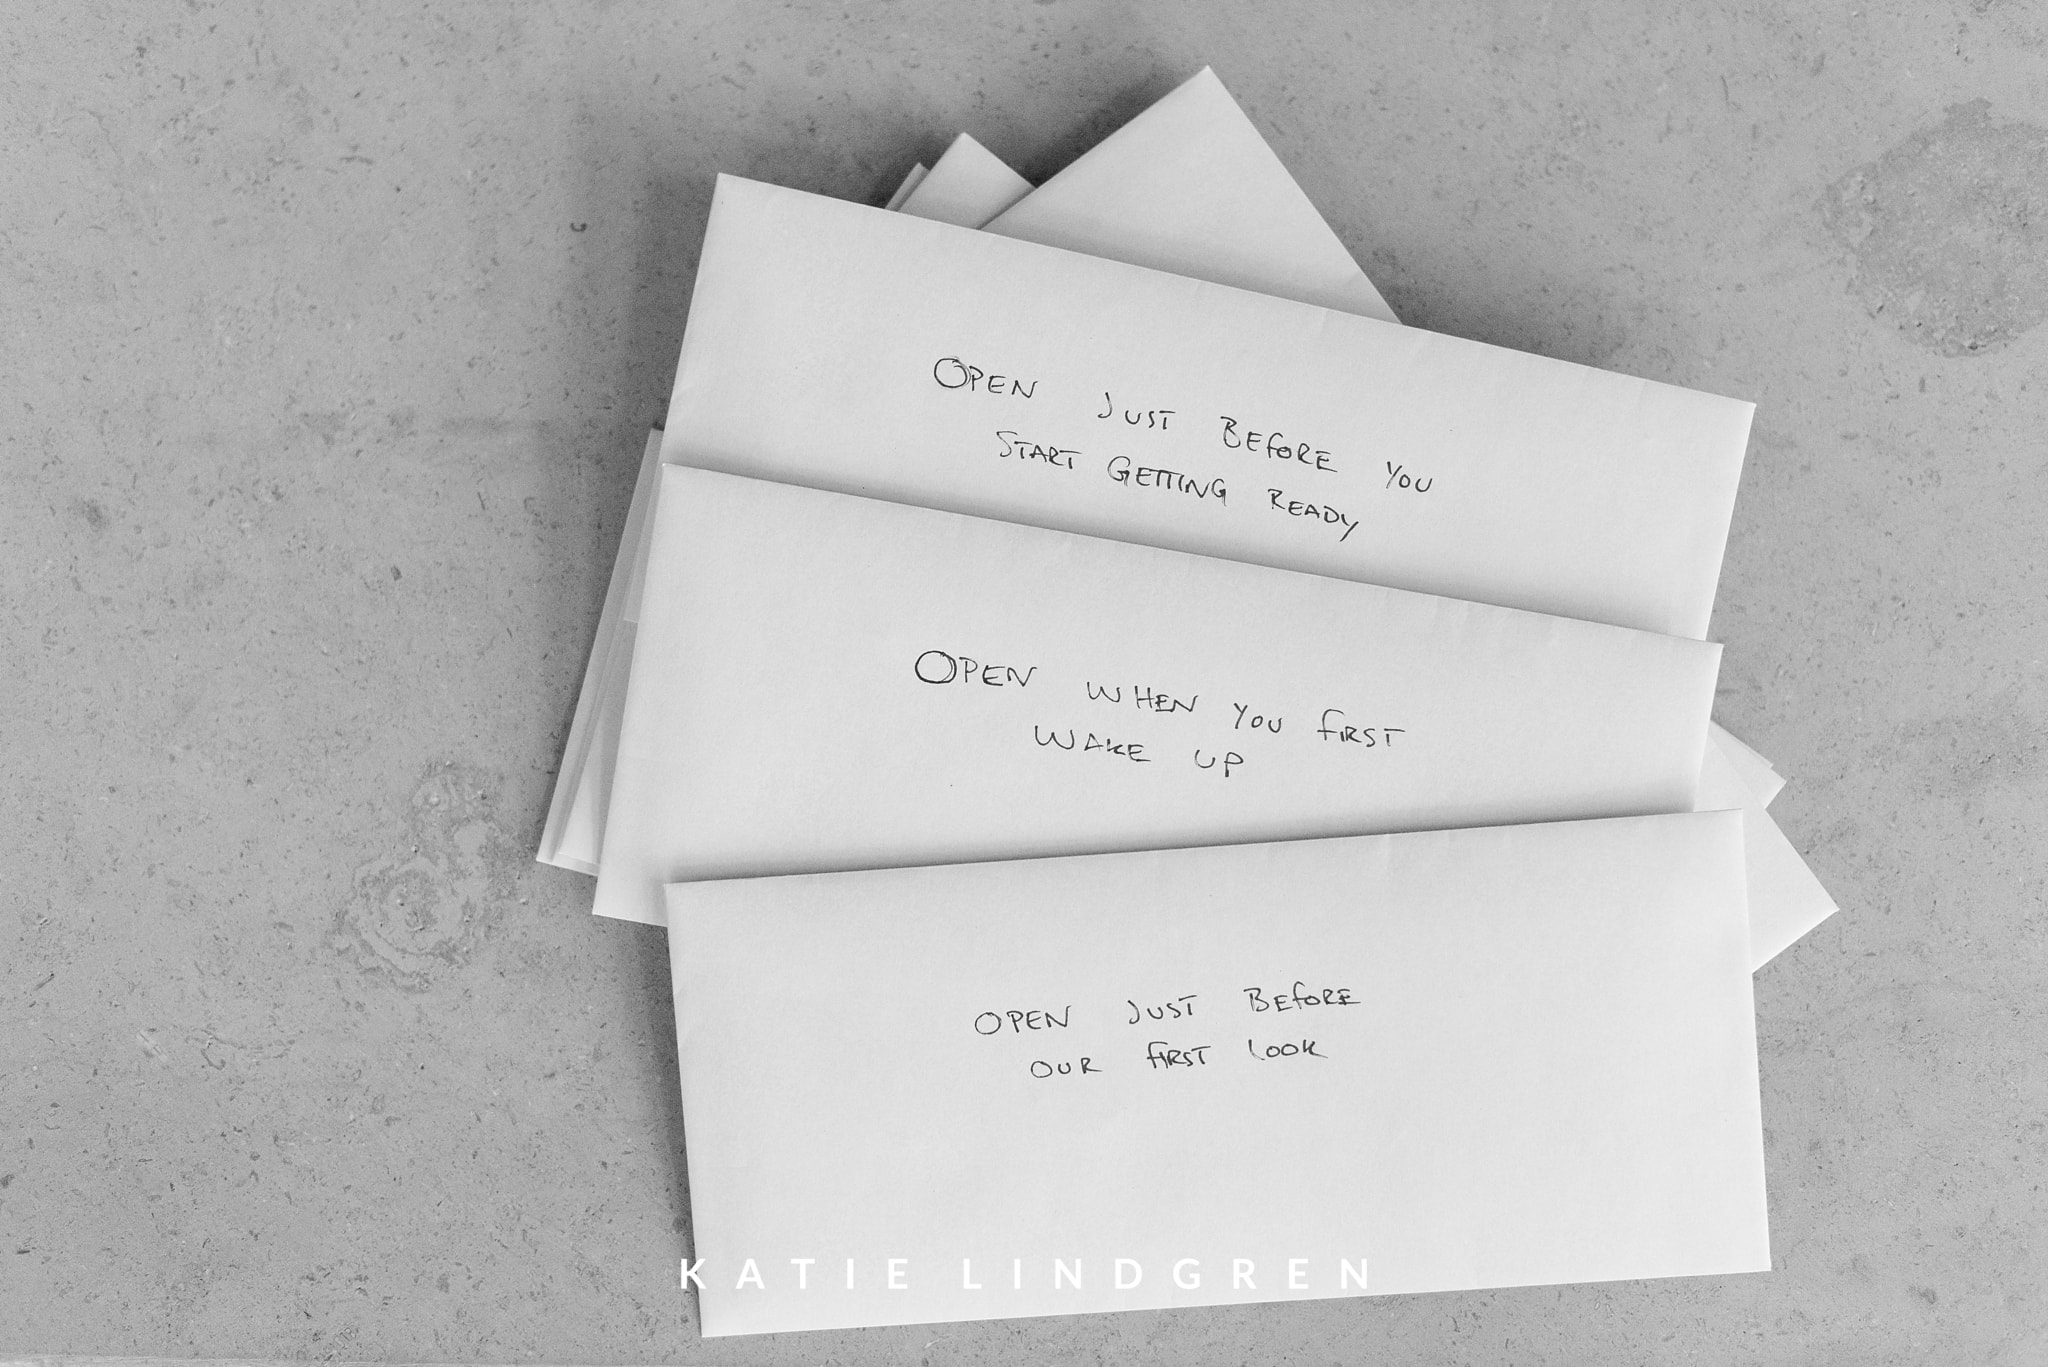 OPEN JUST BEFORE YOU
START GETTING READY
OPEN WHEN YOU FIRST
WAKE UP
OPEN JUST BEFORE
OUR FIRST LOOK
KATIE LINDGREN